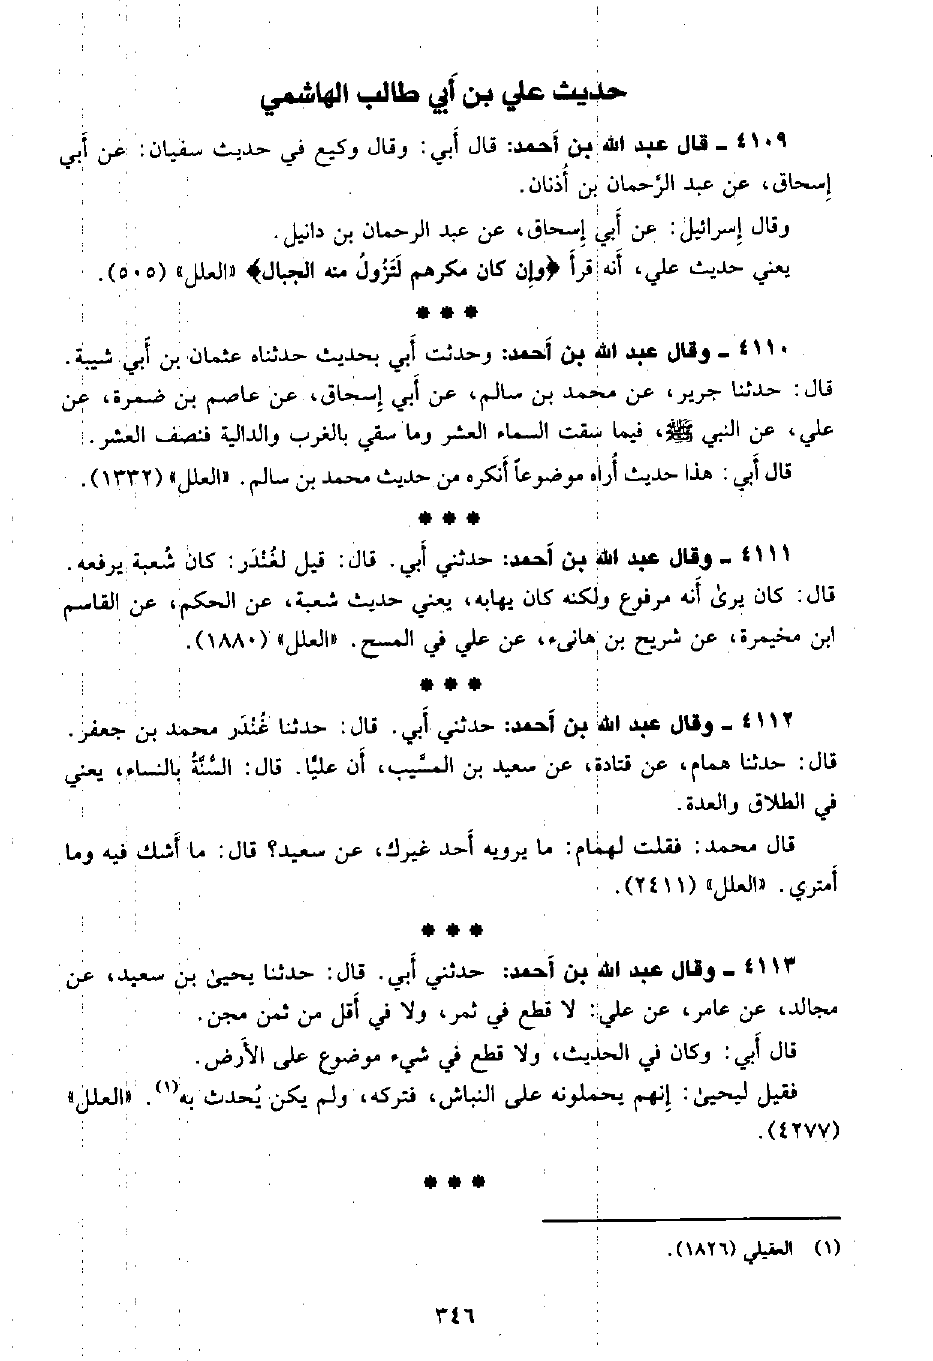 حديث علي بن أبي طالب الهاشمي
٤١٠٩ ـ قال عبد الله بن أحمد: قال أبي: وقال وكيع في حديث سفيان: عن أبي
إسحاق، عن عبد الرَّحمان بن أُذنان.
وقال إسرائيل: عن أبي إسحاق، عن عبد الرحمان بن دانيل.
يعني حديث علي، أنه قرأ ﴿وإن كان مكرهم لَتَزُولُ منه الجبال﴾ «العلل» (٥٠٥).
***
٤١١٠ ـ وقال عبد الله بن أحمد: وحدثت أبي بحديث حدثناه عثمان بن أبي شيبة.
قال: حدثنا جرير، عن محمد بن سالم، عن أبي إسحاق، عن عاصم بن ضمرة، عن
علي، عن النبي ﷺ، فيما سقت السماء العشر وما سقي بالغرب والدالية فنصف العشر.
قال أبي: هذا حديث أُراه موضوعاً أنكره من حديث محمد بن سالم. «العلل» (١٣٣٢).
***
٤١١١ ـ وقال عبد الله بن أحمد: حدثني أبي. قال: قيل لغُنْدَر: كان شُعبة يرفعه.
قال: كان يرىٰ أنه مرفوع ولكنه كان يهابه، يعني حديث شعبة، عن الحكم، عن القاسم
ابن مخيمرة، عن شريح بن هانىء، عن علي في المسح. «العلل» (١٨٨٠).
***
٤١١٢ ـ وقال عبد الله بن أحمد: حدثني أبي. قال: حدثنا غُنْدَر محمد بن جعفر.
قال: حدثنا همام، عن قتادة، عن سعيد بن المسَّيب، أن عليًّا. قال: السُّنَّةُ بالنساء، يعني
في الطلاق والعدة.
قال محمد: فقلت لهمام: ما يرويه أحد غيرك، عن سعيد؟ قال: ما أشك فيه وما
أمتري. «العلل» (٢٤١١).
***
٤١١٣ ـ وقال عبد الله بن أحمد: حدثني أبي. قال: حدثنا يحيىٰ بن سعيد، عن
مجالد، عن عامر، عن علي: لا قطع في ثمر، ولا في أقل من ثمن مجن.
قال أبي: وكان في الحديث، ولا قطع في شيء موضوع على الأرض.
فقيل ليحيىٰ: إنهم يحملونه على النباش، فتركه، ولم يكن يُحدث به(١). «العلل»
(٤٢٧٧).
***
(١) العقيلي (١٨٢٦).
٣٤٦